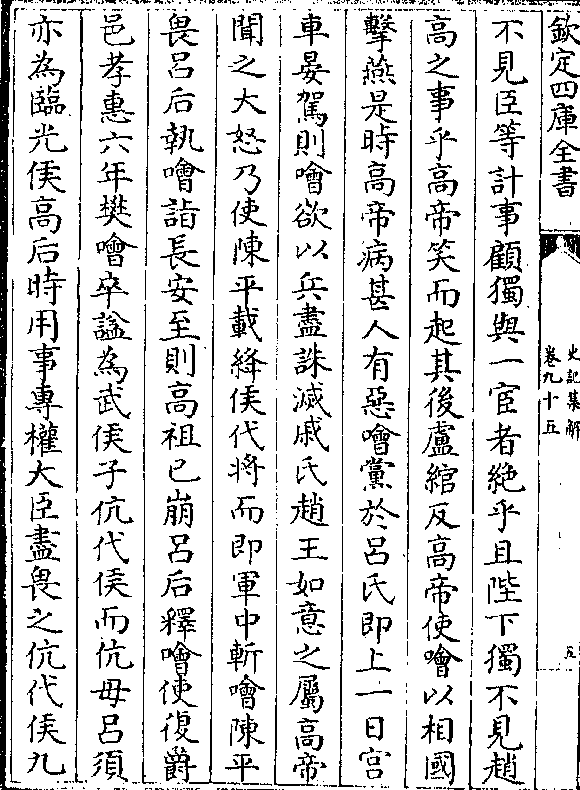 欽定四庫全書
史記集解
卷九十五
五
不見臣等計事顧獨與一宦者絶乎且陛下獨不見趙
高之事乎高帝笑而起其後盧綰反高帝使噲以相國
擊燕是時高帝病甚人有惡噲黨於呂氏即上一日宫
車晏駕則噲欲以兵盡誅滅戚氏趙王如意之屬高帝
聞之大怒乃使陳平載絳侯代將而即軍中斬噲陳平
畏呂后執噲詣長安至則高祖已崩呂后釋噲使復爵
邑孝惠六年樊噲卒諡為武侯子伉代侯而伉母呂須
亦為臨光侯高后時用事專權大臣盡畏之伉代侯九